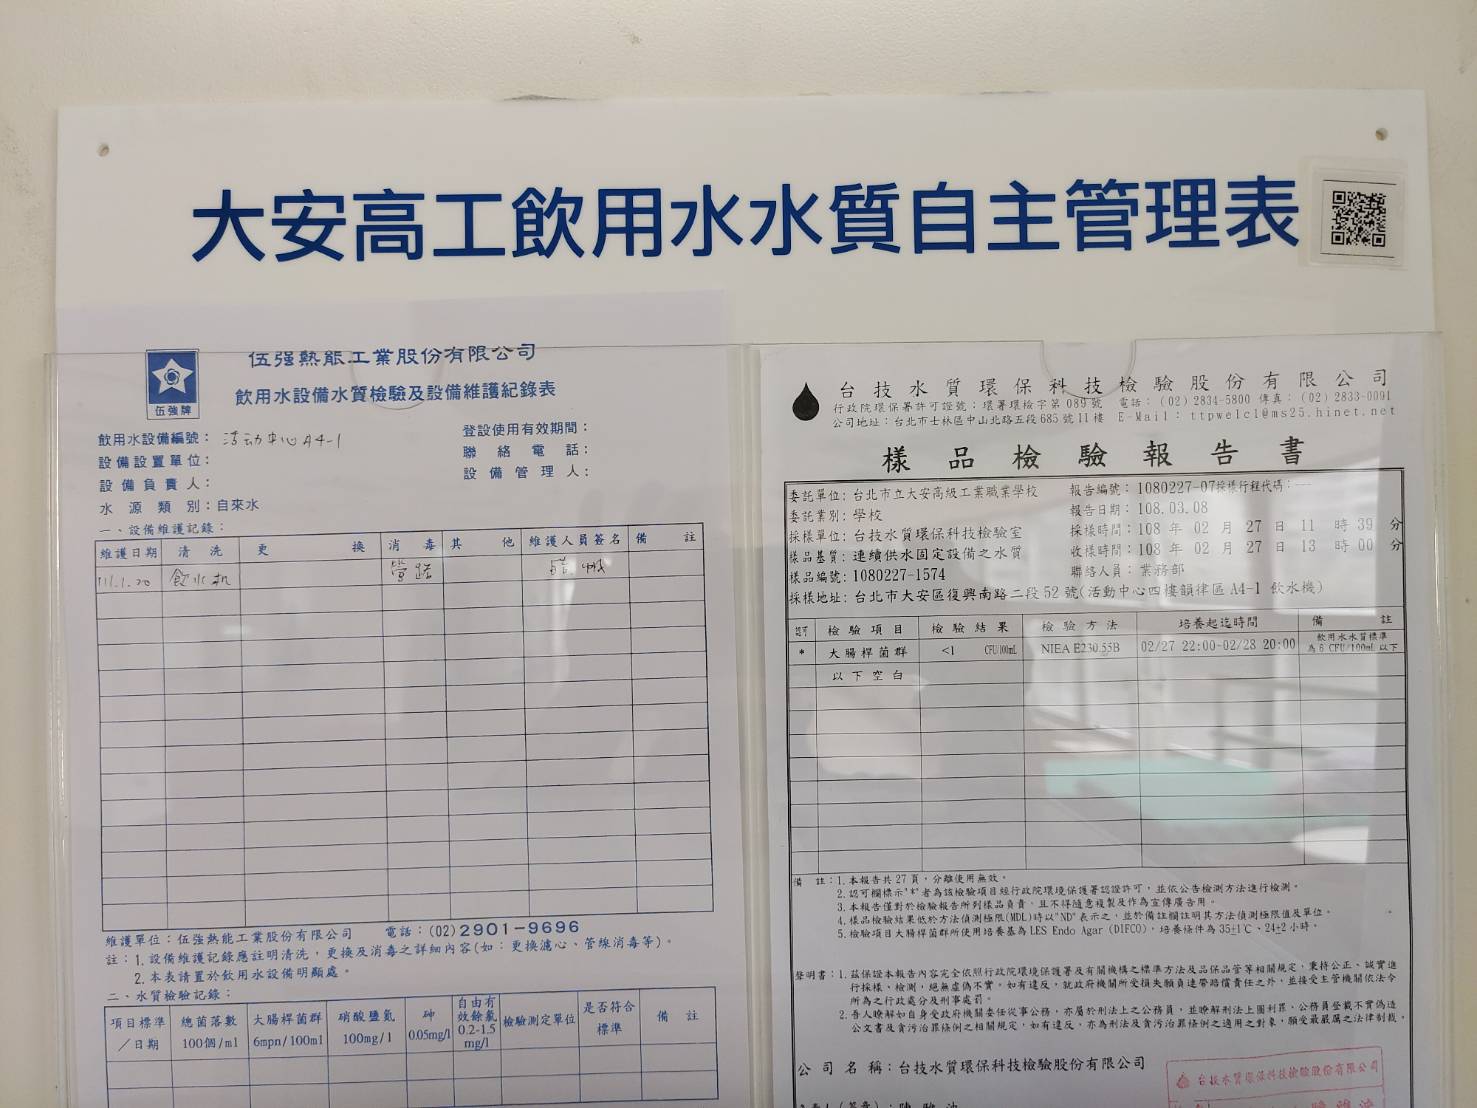 大安高工飲用水水質自主管理表
伍強熱能工業股份有限公司
飲用水設備水質檢驗及設備維護紀錄表
伍強牌
飲用水設備編號：活动中心A4-1
設備設置單位：
設備負責人：
水源類別：自來水
登設使用有效期間：
聯絡電話：
設備管理人：
一、設備維護記錄：
維護日期 清洗 更換 消毒 其他 維護人員簽名 備註
111.1.20 飲水机 管路
維護單位：伍強熱能工業股份有限公司 電話：(02)2901-9696
註：1.設備維護記錄應註明清洗，更換及消毒之詳細內容(如：更換濾心、管線消毒等)。
2.本表請置於飲用水設備明顯處。
二、水質檢驗記錄：
項目標準／日期 總菌落數100個/ml 大腸桿菌群6mpn/100ml 硝酸鹽氮100mg/l 砷0.05mg/l 自由有效餘氯0.2-1.5mg/l 檢驗測定單位 是否符合標準 備註
台技水質環保科技檢驗股份有限公司
行政院環保署許可證號：環署環檢字第089號 電話：(02)2834-5800 傳真：(02)2833-0091
公司地址：台北市士林區中山北路五段685號11樓 E-Mail：ttpwelcl@ms25.hinet.net
樣品檢驗報告書
委託單位：台北市立大安高級工業職業學校 報告編號：1080227-07採樣行程代碼：---
委託業別：學校 報告日期：108.03.08
採樣單位：台技水質環保科技檢驗室 採樣時間：108年02月27日11時39分
樣品基質：連續供水固定設備之水質 收樣時間：108年02月27日13時00分
樣品編號：1080227-1574 聯絡人員：業務部
採樣地址：台北市大安區復興南路二段52號(活動中心四樓韻律區A4-1 飲水機)
認可 檢驗項目 檢驗結果 檢驗方法 培養起迄時間 備註
* 大腸桿菌群 <1 CFU/100mL NIEA E230.55B 02/27 22:00-02/28 20:00 飲用水水質標準為6 CFU/100mL以下
以下空白
備註：1.本報告共27頁，分離使用無效。
2.認可欄標示"*"者為該檢驗項目經行政院環境保護署認證許可，並依公告檢測方法進行檢測。
3.本報告僅對於檢驗報告所列樣品負責，且不得隨意複製及作為宣傳廣告用。
4.樣品檢驗結果低於方法偵測極限(MDL)時以"ND"表示之，並於備註欄註明其方法偵測極限值及單位。
5.檢驗項目大腸桿菌群所使用培養基為LES Endo Agar (DIFCO)，培養條件為35±1℃、24±2小時。
聲明書：1.茲保證本報告內容完全依照行政院環境保護署及有關機構之標準方法及品保品管等相關規定，秉持公正、誠實進
行採樣、檢測，絕無虛偽不實。如有違反，就政府機關所受損失願負連帶賠償責任之外，並接受主管機關依法令
所為之行政處分及刑事處罰。
2.吾人瞭解如自身受政府機關委任從事公務，亦屬於刑法上之公務員，並瞭解刑法上圖利罪、公務員登載不實偽造
公文書及貪污治罪條例之相關規定，如有違反，亦為刑法及貪污治罪條例之適用之對象，願受最嚴厲之法律制裁。
公司名稱：台技水質環保科技檢驗股份有限公司
台技水質環保科技檢驗股份有限公司